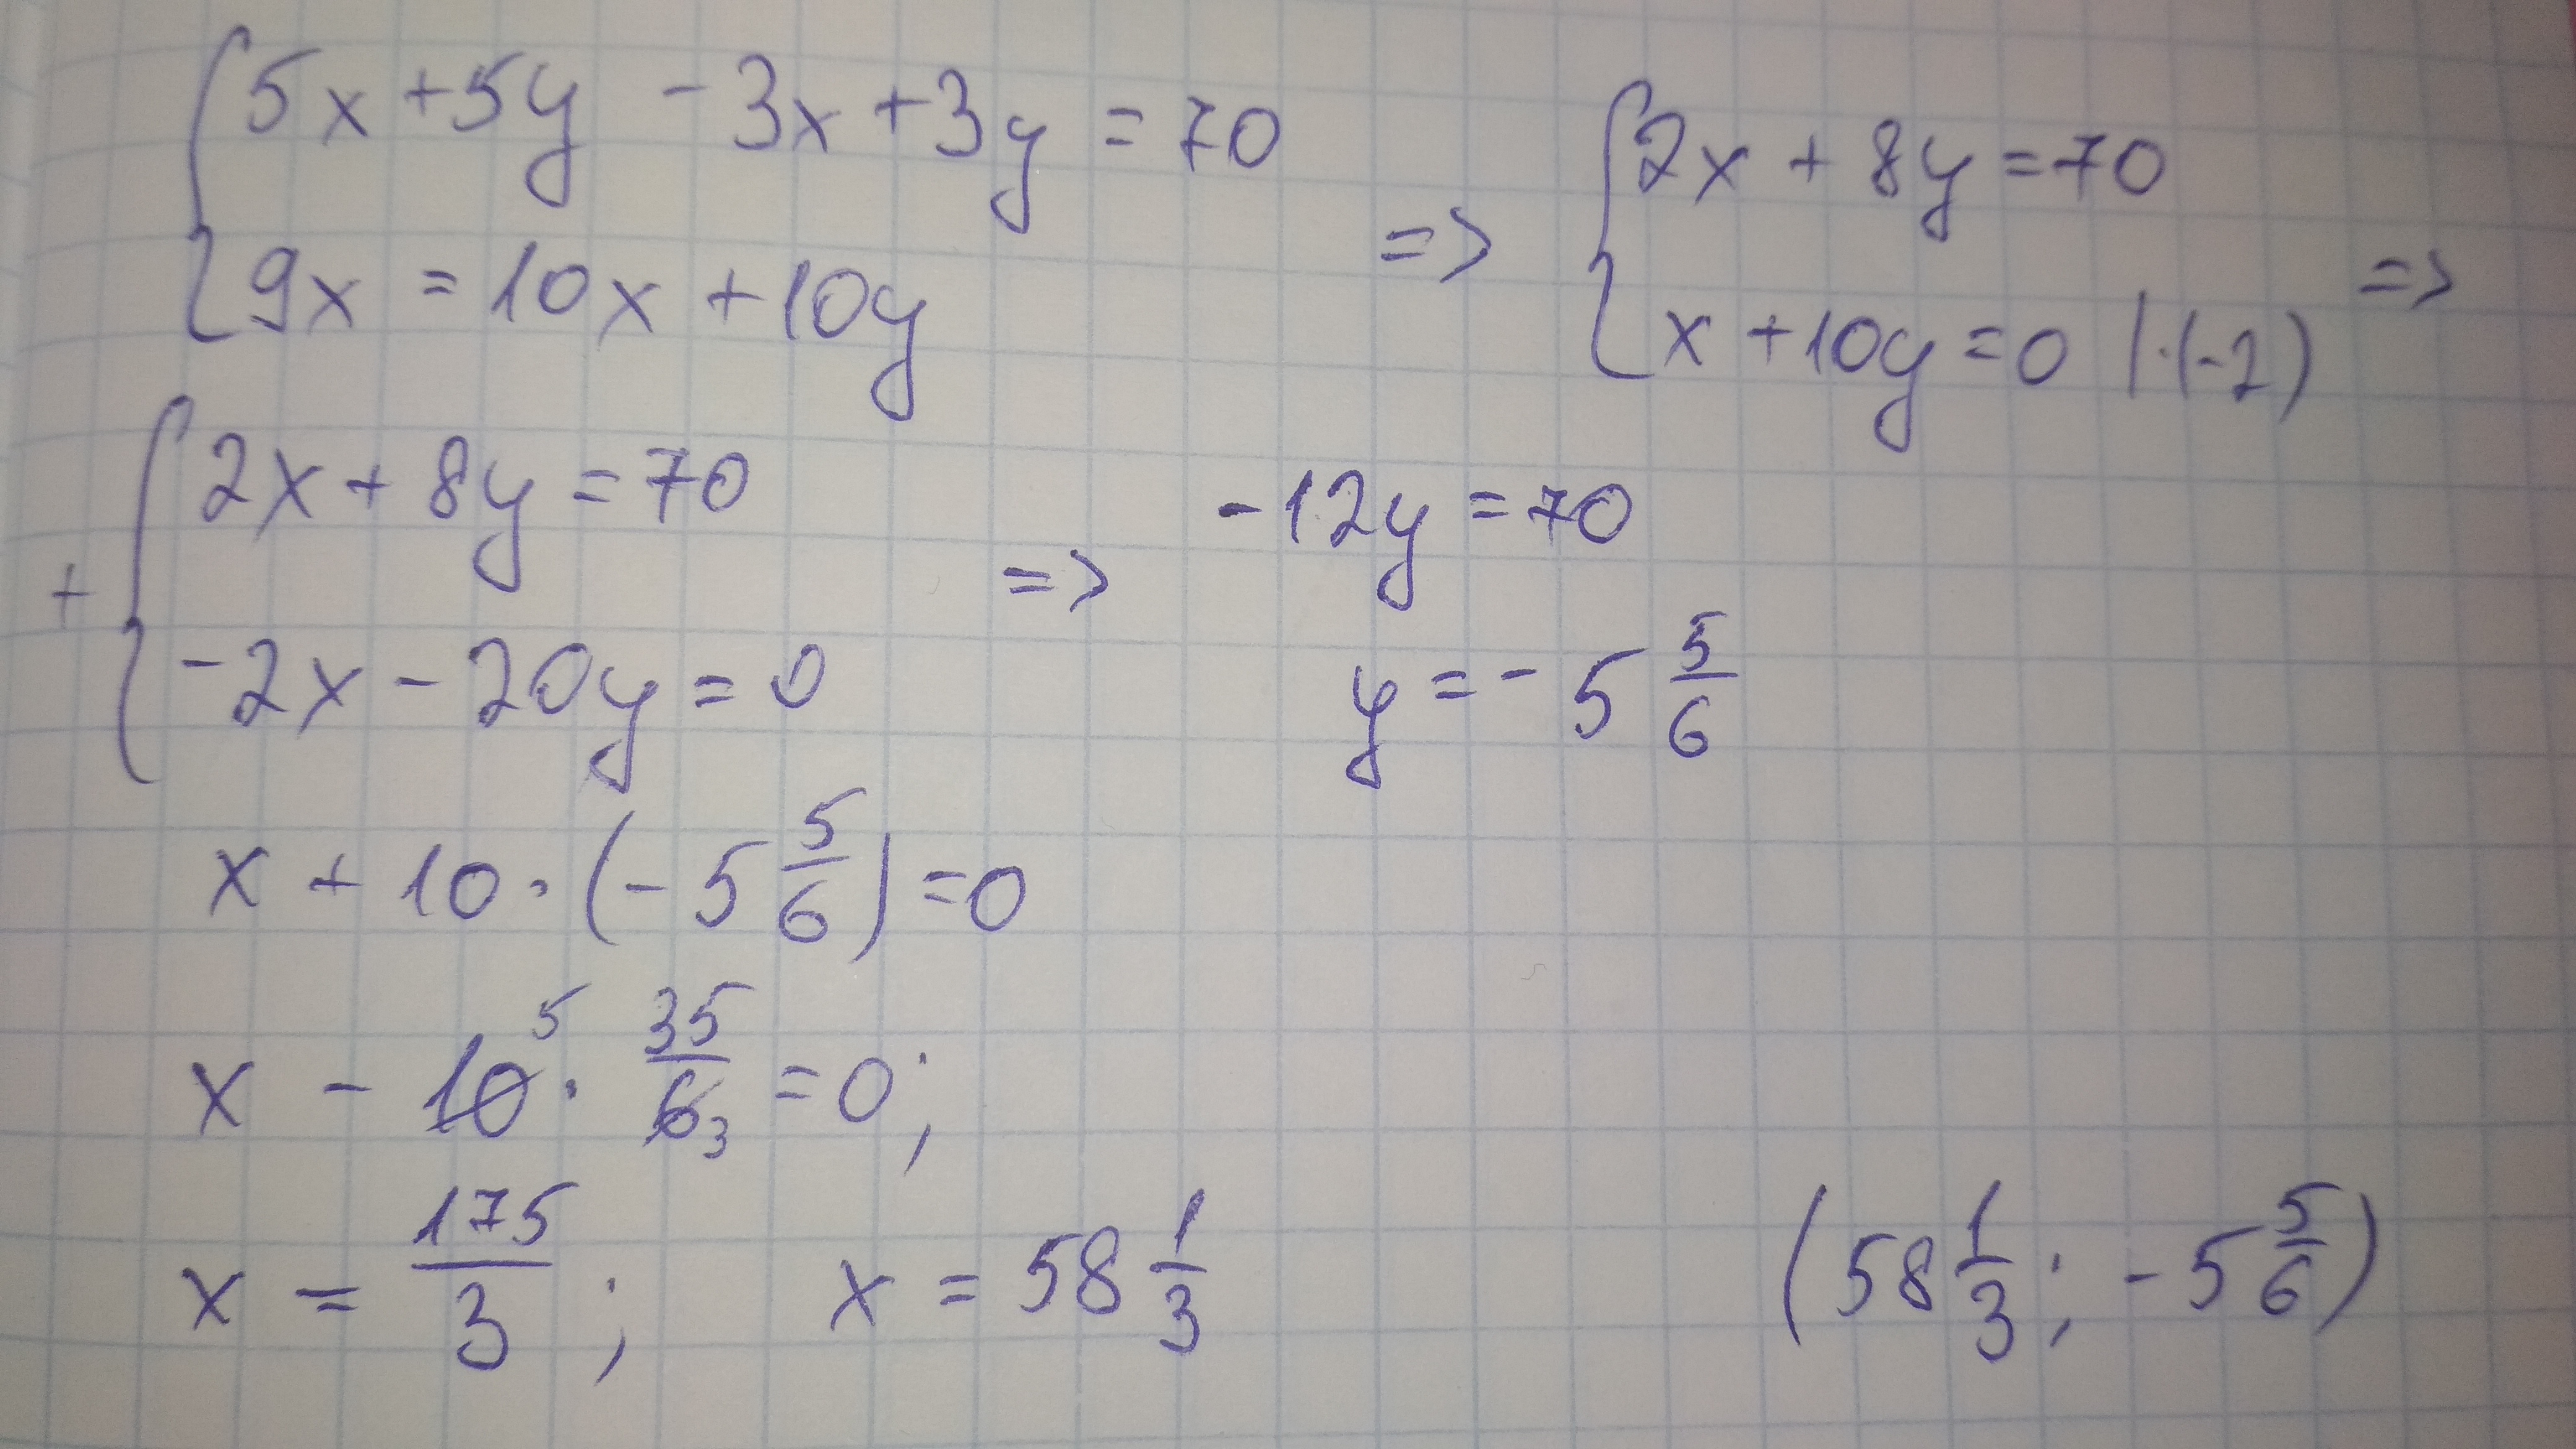 {5x + 5y - 3x + 3y = 70
{9x = 10x + 10y
=> {2x + 8y = 70
{x + 10y = 0 | · (-2) =>
+ {2x + 8y = 70
{-2x - 20y = 0
=> -12y = 70
y = - 5 5/6
x + 10 · (- 5 5/6) = 0
x - 10 5 · 35/6 3 = 0;
x = 175/3 ; x = 58 1/3
(58 1/3 ; - 5 5/6)